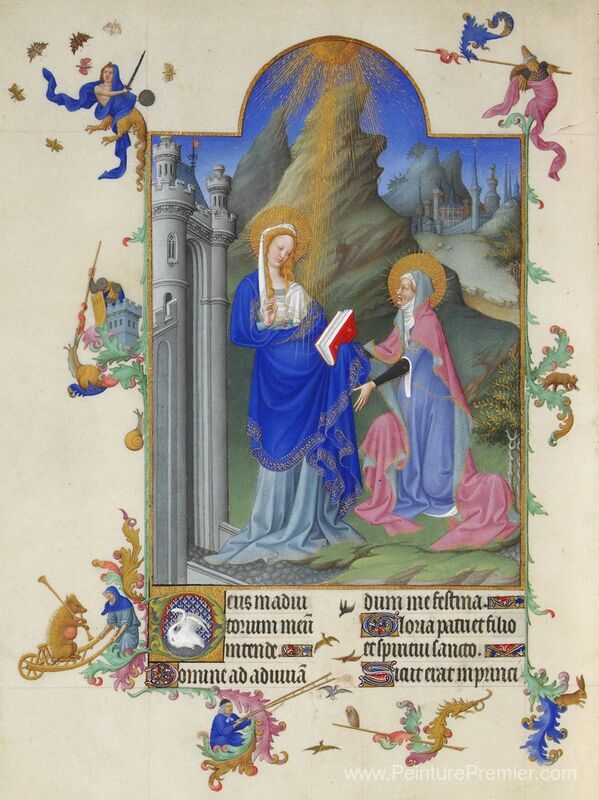 Deus in adiu
torium meū
intende.
Domine ad adiuuā
dum me festina.
Gloria patri et filio
et spiritui sancto.
Sicut erat in princi
www.PeinturePremier.com